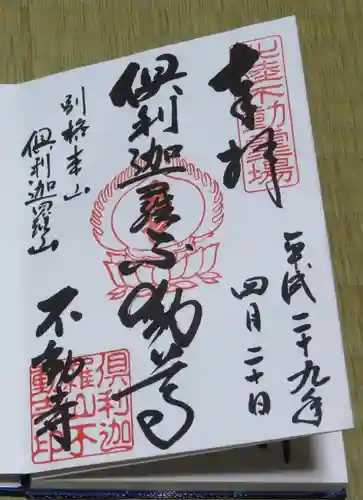 奉拝
山陸不動霊場
平成二十九年
四月二十日
倶利迦羅不動尊
別格本山
倶利迦羅山
不動寺
倶利迦
羅山不
動寺印